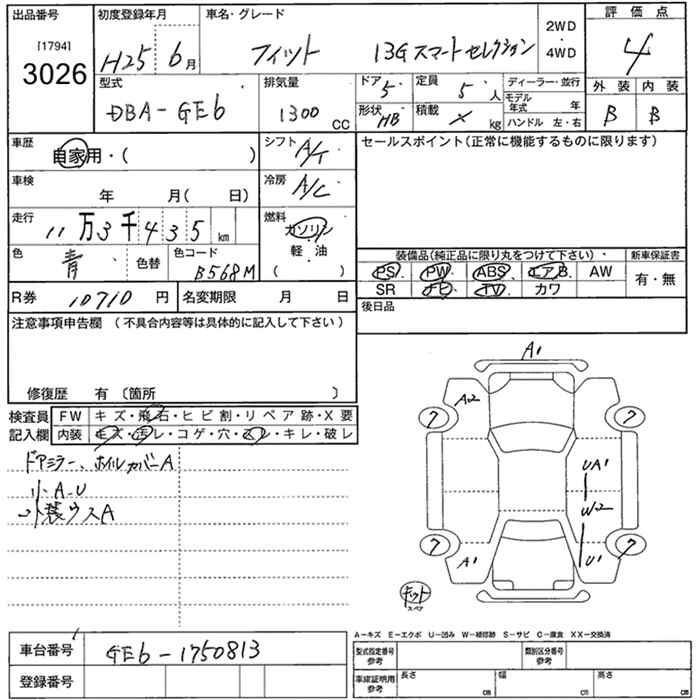 出品番号
[1794]
3026
初度登録年月
H25 6月
車名・グレード
フィット 13G スマートセレクション
2WD
4WD
評価点
4
外装 内装
B B
型式
DBA-GE6
排気量
1300 CC
ドア 5
定員 5 人
形状 HB
積載 × kg
ディーラー・並行
モデル年式 年
ハンドル 左・右
車歴
自家用・( )
シフト A/T
車検
年 月( 日)
冷房 A/C
走行
11万3千435km
燃料
ガソリン
軽・油
( )
色 青
色替
色コード B568M
R券 10710円
名変期限 月 日
セールスポイント(正常に機能するものに限ります)
装備品(純正品に限り丸をつけて下さい)
新車保証書
PS PW ABS エアB AW
有・無
SR ナビ TV カワ
後日品
注意事項申告欄 (不具合内容等は具体的に記入して下さい)
修復歴 有 〔箇所 〕
検査員記入欄
FW キズ・飛石・ヒビ割・リペア跡・X要
内装 キズ・汚レ・コゲ・穴・スレ・キレ・破レ
ドアミラー、ホイルカバーA
小A.U
外装ウスA
A1
A2
7
7
UA1
W2
7
A1
U1
7
キット
スペア
A-キズ E-エクボ U-凹み W-補修跡 S-サビ C-腐食 XX-交換済
車台番号 GE6-1750813
登録番号
型式指定番号 参考
類別区分番号 参考
車庫証明用 参考
長さ cm
幅 cm
高さ cm